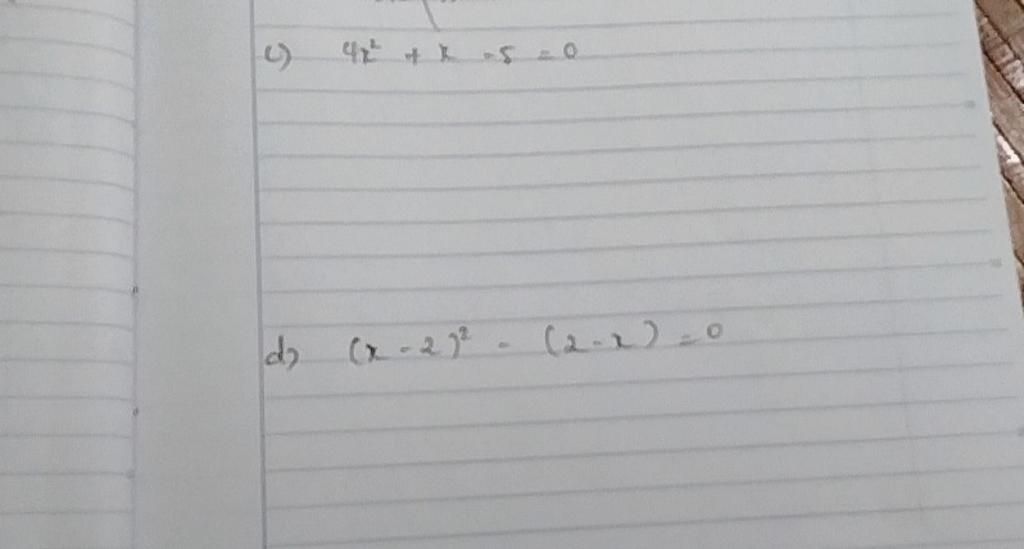 c) 4x² + x - 5 = 0
d) (x - 2)² - (2 - x) = 0